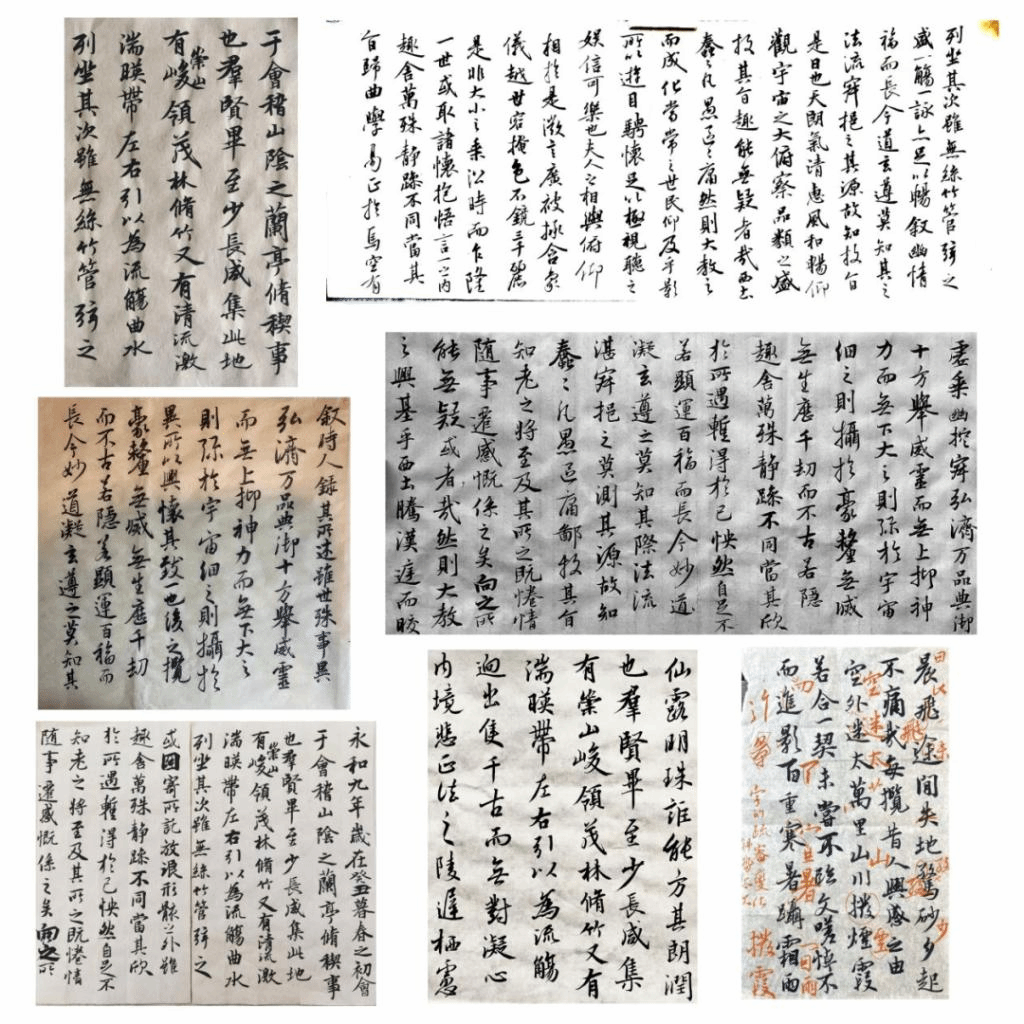 于會稽山陰之蘭亭脩稧事
也羣賢畢至少長咸集此地
有崇山峻領茂林脩竹又有清流激
湍暎帶左右引以為流觴曲水
列坐其次雖無絲竹管弦之
列坐其次雖無絲竹管弦之
盛一觴一詠亦足以暢敘幽情
福而長今道玄遵莫知其之
法流寂挹之其源故知故旨
是日也天朗氣清惠風和暢仰
觀宇宙之大俯察品類之盛
投其旨趣能無疑者哉西土
蠢之凡愚區之庸然則大教之
而成化當常之世民仰及乎影
所以遊目騁懷足以極視聽之
娱信可樂也夫人之相與俯仰
相於是微言廣被拯含衆
儀越世容掩色不鏡三千麗
是非大小之乘沿時而乍隆
一世或取諸懷抱悟言一室內
趣舍萬殊靜躁不同當其
旨歸曲學易正於焉空有
虛乘幽控寂弘濟万品典御
十方舉威靈而無上抑神
力而無下大之則弥於宇宙
細之則攝於豪釐無滅
無生歷千劫而不古若隱
趣舍萬殊靜躁不同當其欣
於所遇蹔得於己怏然自足不
若顯運百福而長今妙道
凝玄遵之莫知其際法流
湛寂挹之莫測其源故知
蠢〻凡愚區〻庸鄙投其旨
知老之將至及其所之既惓情
隨事遷感慨係之矣向之所
能無疑或者哉然則大教
之興基乎西土騰漢庭而皎
敘時人錄其所述雖世殊事異
弘濟万品典御十方舉威靈
而無上抑神力而無下大之
則弥於宇宙細之則攝於
異所以興懷其致也後之攬
豪釐無滅無生歷千劫
而不古若隱若顯運百福而
長今妙道凝玄遵之莫知其
永和九年歲在癸丑暮春之初會
于會稽山陰之蘭亭脩稧事
也羣賢畢至少長咸集此地
有崇山峻領茂林脩竹又有清流激
湍暎帶左右引以為流觴曲水
列坐其次雖無絲竹管弦之
或因寄所託放浪形骸之外雖
趣舍萬殊靜躁不同當其欣
於所遇蹔得於己怏然自足不
知老之將至及其所之既惓情
隨事遷感慨係之矣向之所
仙露明珠詎能方其朗潤
也羣賢畢至少長咸集
有崇山峻領茂林脩竹又有
湍暎帶左右引以為流觴
迥出隻千古而無對凝心
內境悲正法之陵遲栖慮
晨飛途間失地驚砂夕起
不痛哉每攬昔人興感之由
空外迷太萬里山川撥煙霞
若合一契未嘗不臨文嗟悼不
而進影百重寒暑躡霜雨